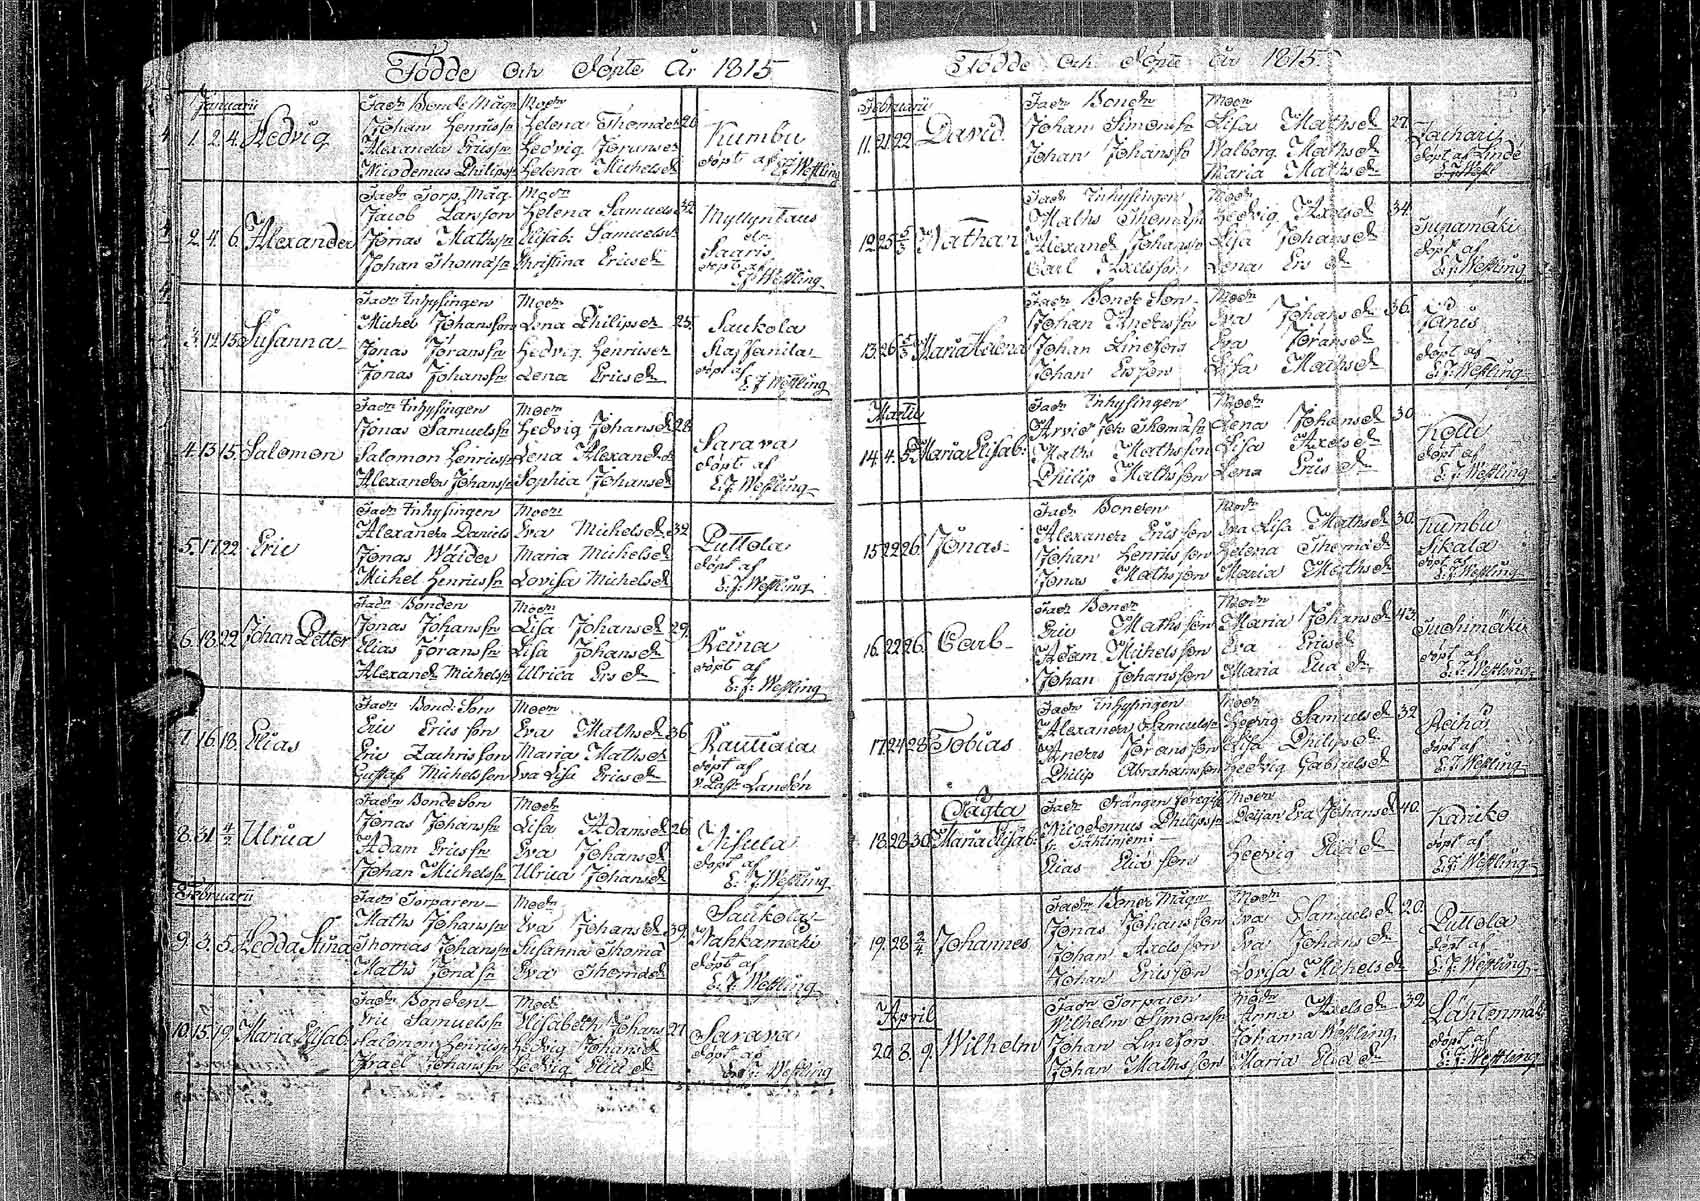 Födde och Döpte År 1815
Januarii
1. 2. 4. Hedvig
Fadr Bonde Måg
Johan Henricss
Alexander Ericss
Nicodemus Philipss
Modr
Helena Thomaedr 26
Hedvig Göransdr
Helena Michelsdr
Kumbu
döpt af
E. J. Wefling
2. 4. 6. Alexander
Fadr Torp. Måg
Jacob Larsson
Jonas Mathss
Johan Thomass
Modr
Helena Samuelsdr 32
Elisab. Samuelsdr
Christina Ericsdr
Myllyntaus
Saaris
döpt af
E. J. Wefling
3. 12. 15. Susanna
Fadr Inhysingen
Michel Johansson
Jonas Göranss
Jonas Johanss
Modr
Lena Philipsdr 25.
Hedvig Henricsdr
Lena Ericsdr
Saukola
Staffanila
döpt af
E. J. Wefling
4. 13. 15. Salomon
Fadr Inhysingen
Jonas Samuelss
Salomon Henricss
Alexander Johanss
Modr
Hedvig Johansdr 28.
Lena Alexandersdr
Sophia Johansdr
Sarava
döpt af
E. J. Wefling
5. 17. 22. Eric
Fadr Inhysingen
Alexander Daniels
Jonas Wäider
Michel Henricss
Modr
Eva Michelsdr 32
Maria Michelsdr
Lovisa Michelsdr
Puttola
döpt af
E. J. Wefling
6. 18. 22. Johan Petter
Fadr Bonden
Jonas Johanss
Elias Göranss
Alexandr Michelss
Modr
Lisa Johansdr 29.
Lisa Johansdr
Ulrica Ersdr
Reina
döpt af
E. J. Wefling
7. 16. 18. Elias
Fadr Bond. Son
Eric Ericsson
Eric Zachrisson
Gustaf Michelsson
Modr
Eva Mathsdr 36
Maria Mathsdr
Eva Lisa Ericsdr
Rautiala
döpt af
v. Past. Landén
8. 31. 4/2 Ulrica
Fadr Bonde Son
Jonas Johanss
Adam Ericss
Johan Michelss
Modr
Lisa Adamsdr 26.
Eva Johansdr
Ulrica Johansdr
Nisula
döpt af
E. J. Wefling
Februarii
9. 3. 5. Hedda Stina
Fadr Torparen
Maths Johanss
Thomas Johanss
Maths Jonass
Modr
Eva Johansdr 39.
Susanna Thomae
Eva Thomaedr
Saukola
Nahkamäki
döpt af
E. J. Wefling
10. 15. 19. Maria Elisab.
Fadr Bonden
Eric Samuelss
Salomon Henricss
Israel Johanss
Modr
Elisabeth Johans 27
Hedvig Johansdr
Hedvig Eliedr
Sarava
döpt af
E. J. Wefling
Födde och Döpte År 1815.
Februarii
11. 21. 22. David
Fadr Bondn
Johan Simonss
Johan Johansso
Modr
Lisa Mathsdr 27.
Walborg Mathsdr
Maria Mathsdr
Zachari
döpt af Lindé
12. 25. 5/3 Nathan
Fadr Inhysingen
Maths Thomass
Alexandr Johanss
Carl Axelsson
Modr
Hedvig Axelsdr 34.
Lisa Johansdr
Lena Ersdr
Tupamäki
döpt af
E. J. Wefling
13. 26. 5/3 Maria Helena
Fadr Bonde Son
Johan Anderss
Johan Lindfors
Johan Ersson
Modr
Eva Johansdr 36.
Eva Göransdr
Lisa Mathsdr
Janis
döpt af
E. J. Wefling
Martii
14. 4. 5. Maria Elisab.
Fadr Inhysingen
Arvid Joh. Thomass
Maths Mathsson
Philip Mathsson
Modr
Lena Johansdr 30
Lisa Axelsdr
Lena Ericsdr
Kolli
döpt af
E. J. Wefling
15. 22. 26. Jonas
Fadr Bonden
Alexander Ericsson
Johan Henricsson
Jonas Mathsson
Modr
Eva Lisa Mathsdr 30.
Helena Thomaedr
Maria Mathsdr
Kumbu
Sikala
döpt af
E. J. Wefling
16. 22. 26. Carl
Fadr Bondn
Eric Mathsson
Adam Michelsson
Johan Johansson
Modr
Maria Johansdr 43.
Eva Ericsdr
Maria Eliedr
Tuchimäki
döpt af
E. J. Wefling
17. 24. 28. Tobias
Fadr Inhysingen
Alexander Samuelss
Anders Göransson
Philip Abrahamsson
Modr
Hedvig Samuelsdr 32
Lisa Philipsdr
Hedvig Gabrielsdr
Reihos
döpt af
E. J. Wefling
Oägta
18. 28. 30. Maria Elisab.
Fadr Drängen föregifs
Nicodemus Philipss
Elias Eliesson
Modern
Pigan Eva Johansdr 40.
Hedvig Eliedr
Kaniko
döpt af
E. J. Wefling
19. 28. 2/4 Johannes
Fadr Bonde Mågn
Jonas Johansson
Johan Axelsson
Johan Ericsson
Modr
Eva Samuelsdr 20.
Eva Johansdr
Lovisa Michelsdr
Puttola
döpt af
E. J. Wefling
April
20. 8. 9. Wilhelm
Fadr Torparen
Wilhelm Simonss
Johan Lindfors
Johan Mathsson
Modr
Anna Axelsdr 32
Johanna Wefling
Maria Eliedr
Lähtenmäki
döpt af
E. J. Wefling